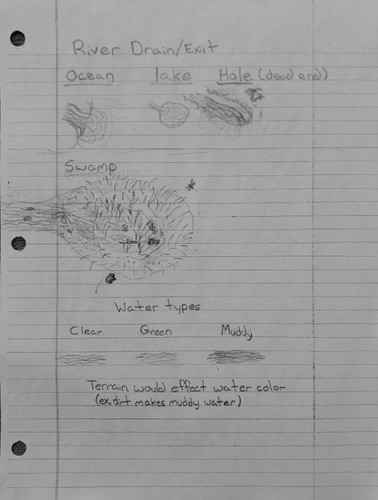 River Drain/Exit
Ocean lake Hole (dead end)
Swamp
Water types
Clear Green Muddy
Terrain would effect water color
(ex. dirt makes muddy water)